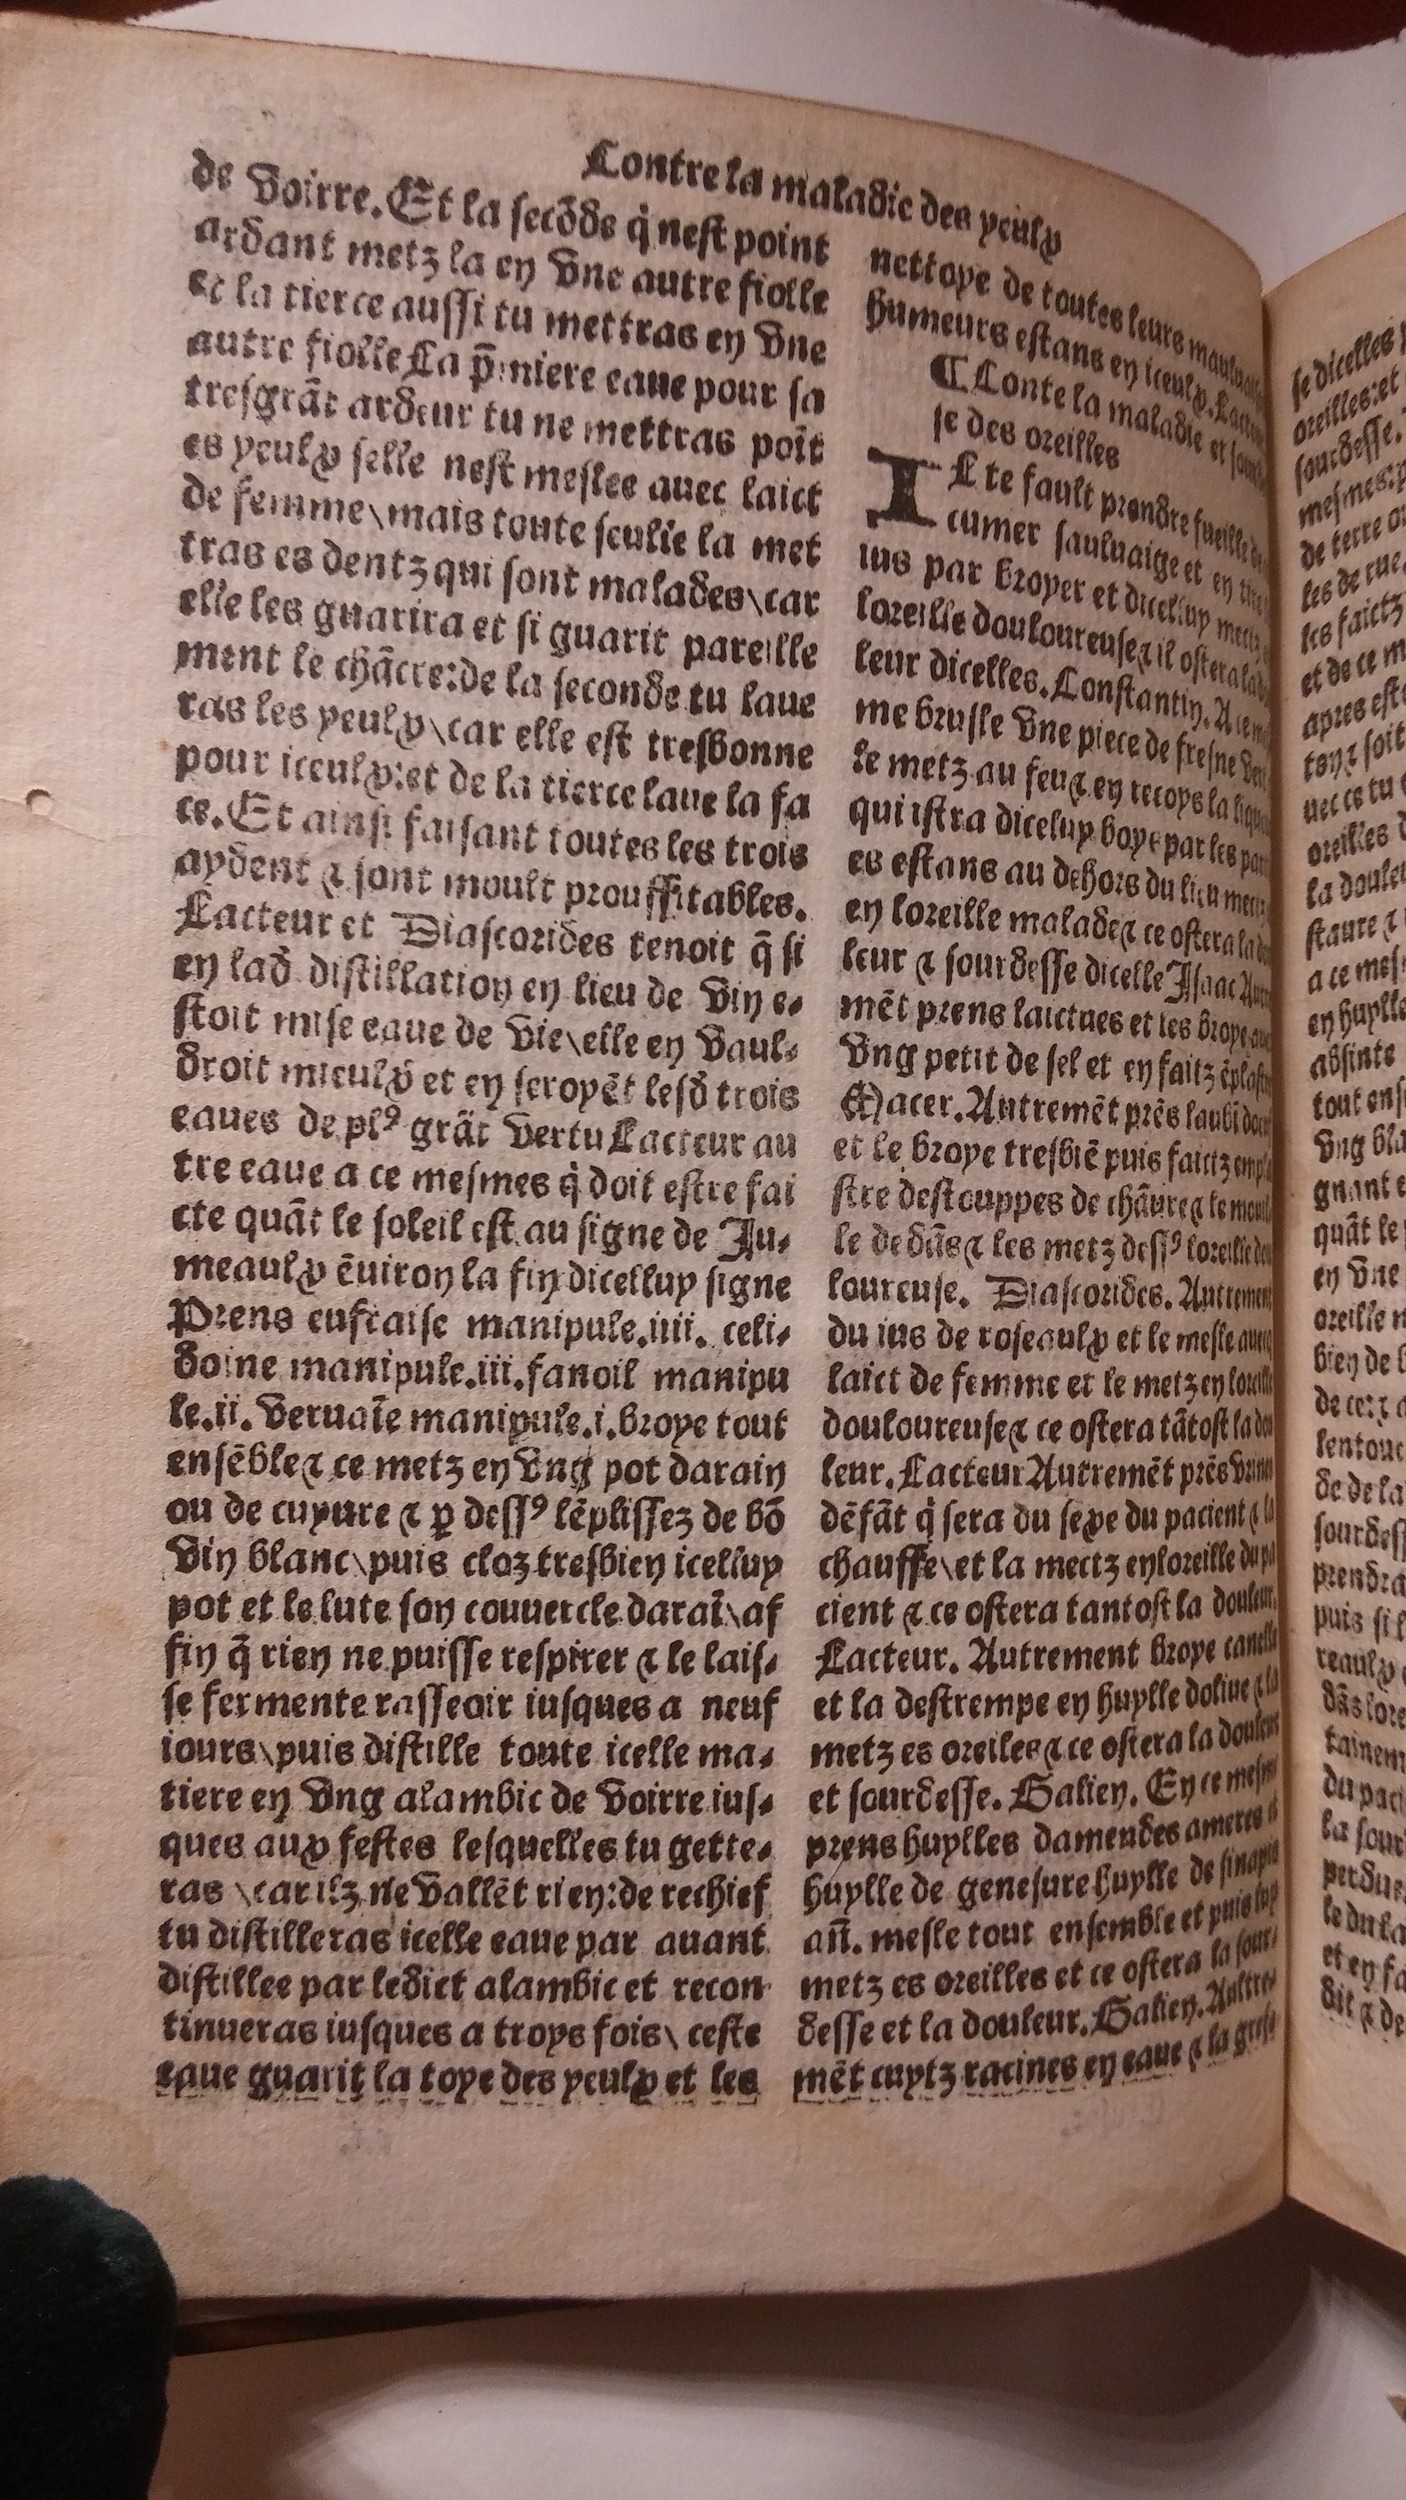 Contre la maladie des yeulx
de voirre. Et la secõde q̇ nest point
ardant metz la en vne autre fiolle
et la tierce aussi tu mettras en vne
autre fiolle La p̄miere eaue pour sa
tresgrãt ardeur tu ne mettras poĩt
es yeulx selle nest meslee auec laict
de femme\mais toute seulle la met
tras es dentz qui sont malades\car
elle les guarira et si guarit pareille
ment le chãcre:de la seconde tu laue
ras les yeulx\car elle est tresbonne
pour iceulx:et de la tierce laue la fa
ce. Et ainsi faisant toutes les trois
aydent ⁊ sont moult prouffitables.
Lacteur et Diascorides tenoit q̃ si
en lad̃ distillation en lieu de vin e⸗
stoit mise eaue de vie\elle en vaul⸗
droit mieulx et en seroyẽt lesd̃ trois
eaues de plꝰ grãt vertu Lacteur au
tre eaue a ce mesmes q̇ doit estre fai
cte quãt le soleil est au signe de Iu⸗
meaulx ẽuiron la fin dicelluy signe
Prens eufraise manipule.iiii. celi⸗
doine manipule.iii.fanoil manipu
le.ii. veruaĩe manipule.i.broye tout
ensẽble⁊ ce metz en vng pot darain
ou de cuyure ⁊ ꝑ dessꝰ lẽplissez de bõ
vin blanc\puis cloz tresbien icelluy
pot et le lute son couuercle daraĩ\af
fin q̃ rien ne puisse respirer ⁊ le lais⸗
se fermente rasseoir iusques a neuf
iours\puis distille toute icelle ma⸗
tiere en vng alambic de voirre ius⸗
ques aux festes lesquelles tu gette⸗
ras \car ilz ne vallẽt rien:de rechief
tu distilleras icelle eaue par auant
distillee par ledict alambic et recon
tinueras iusques a troys fois\ ceste
eaue guarit la toye des yeulx et les
nettoye de toutes leurs
humeurs estans en iceulx.
¶ Conte la maladie et
se des oreilles
IL te fault prendre fueilles
cumer sauluaige et en
ius par broyer et dicelluy
loreille douloureuse⁊ il ostera la
leur dicelles. Constantin.
me brusle vne piece de fresne
le metz au feu⁊ en recoys la
qui istra dicelup boys par les
es estans au dehors du lieu
en loreille malade⁊ ce ostera la
leur ⁊ sourdesse dicelle Isaac
mẽt prens laictues et les broye
vng petit de sel et en faitz
Macer. Autremẽt prẽs
et le broye tresbiẽ puis faictz
stre destouppes de chãure⁊ le
le dedãs⁊ les metz dessꝰ loreille
loureuse. Diascorides. Autrement
du ius de roseaulx et le mesle
laict de femme et le metz en
douloureuse⁊ ce ostera tãtost la
leur. Lacteur Autremẽt prẽs
dẽfãt q̇ sera du sexe du pacient ⁊ la
chauffe\et la mectz en loreille du pa
cient ⁊ ce ostera tantost la douleur.
Lacteur. Autrement broye canelle
et la destrempe en huylle doliue ⁊ la
metz es oreiles⁊ ce ostera la douleur
et sourdesse. Galien. En ce mesme
prens huylles damendes ameres ⁊
huylle de genesure huylle de
añ. mesle tout ensemble et puis
metz es oreilles et ce ostera la sour⸗
desse et la douleur. Galien. Aultre⸗
mẽt cuytz racines en eaue ⁊ la
se dicelles
oreilles:et
sourdesse.
mesmes:
de terre
les de rue.
les faictz
et de ce
apres
soit
tu
oreilles
la
staure ⁊
a ce
en huylle
absinte
tout
vng
gnant
quãt le
en vne
oreille
bien de
de
de de la
prendra
puis
la
perdue
le du
et en
dit ⁊ de